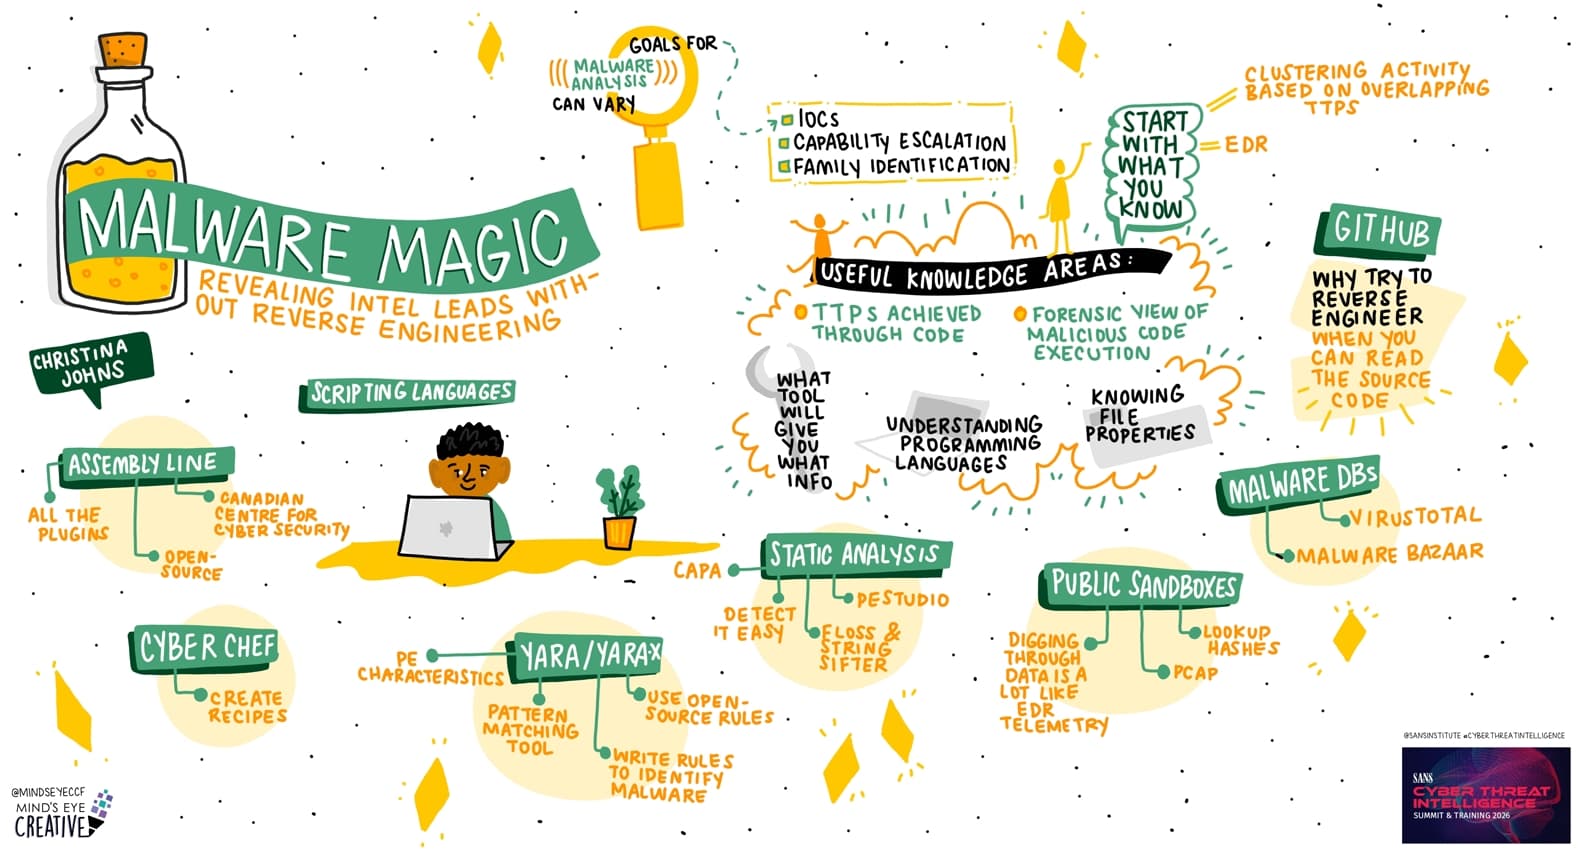 MALWARE MAGIC
REVEALING INTEL LEADS WITH-
OUT REVERSE ENGINEERING
CHRISTINA
JOHNS
GOALS FOR
MALWARE
ANALYSIS
CAN VARY
IOCs
CAPABILITY ESCALATION
FAMILY IDENTIFICATION
START
WITH
WHAT
YOU
KNOW
CLUSTERING ACTIVITY
BASED ON OVERLAPPING
TTPS
EDR
USEFUL KNOWLEDGE AREAS:
TTPS ACHIEVED
THROUGH CODE
FORENSIC VIEW OF
MALICIOUS CODE
EXECUTION
WHAT
TOOL
WILL
GIVE
YOU
WHAT
INFO
UNDERSTANDING
PROGRAMMING
LANGUAGES
KNOWING
FILE
PROPERTIES
GITHUB
WHY TRY TO
REVERSE
ENGINEER
WHEN YOU
CAN READ
THE SOURCE
CODE
SCRIPTING LANGUAGES
ASSEMBLY LINE
ALL THE
PLUGINS
OPEN-
SOURCE
CANADIAN
CENTRE FOR
CYBER SECURITY
CYBER CHEF
CREATE
RECIPES
YARA/YARA-X
PE
CHARACTERISTICS
PATTERN
MATCHING
TOOL
WRITE RULES
TO IDENTIFY
MALWARE
USE OPEN-
SOURCE RULES
STATIC ANALYSIS
CAPA
DETECT
IT EASY
FLOSS &
STRING
SIFTER
PESTUDIO
PUBLIC SANDBOXES
DIGGING
THROUGH
DATA IS A
LOT LIKE
EDR
TELEMETRY
PCAP
LOOKUP
HASHES
MALWARE DBs
VIRUSTOTAL
MALWARE BAZAAR
@MINDSEYECCF
MIND'S EYE
CREATIVE
@SANSINSTITUTE #CYBERTHREATINTELLIGENCE
SANS
CYBER THREAT
INTELLIGENCE
SUMMIT & TRAINING 2026